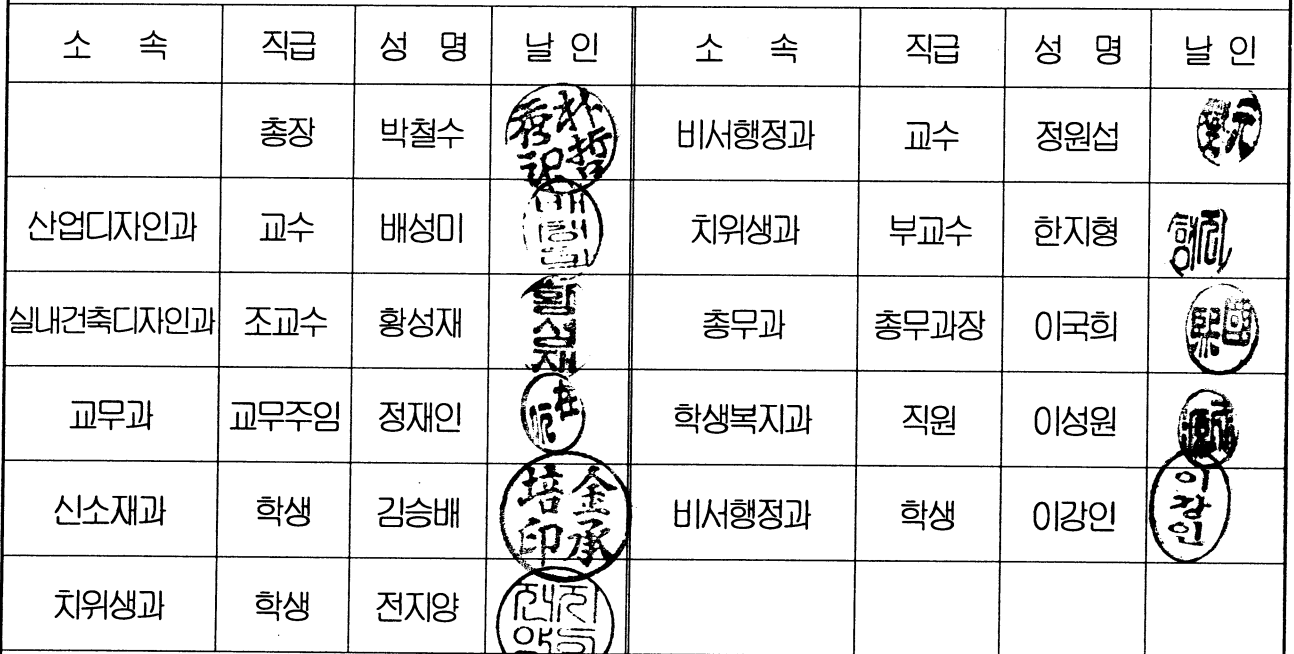 소 속 직급 성 명 날 인 소 속 직급 성 명 날 인
총장 박철수 비서행정과 교수 정원섭
산업디자인과 교수 배성미 치위생과 부교수 한지형
실내건축디자인과 조교수 황성재 황성재 총무과 총무과장 이국희
교무과 교무주임 정재인 학생복지과 직원 이성원
신소재과 학생 김승배 金承培印 비서행정과 학생 이강인 이강인
치위생과 학생 전지양